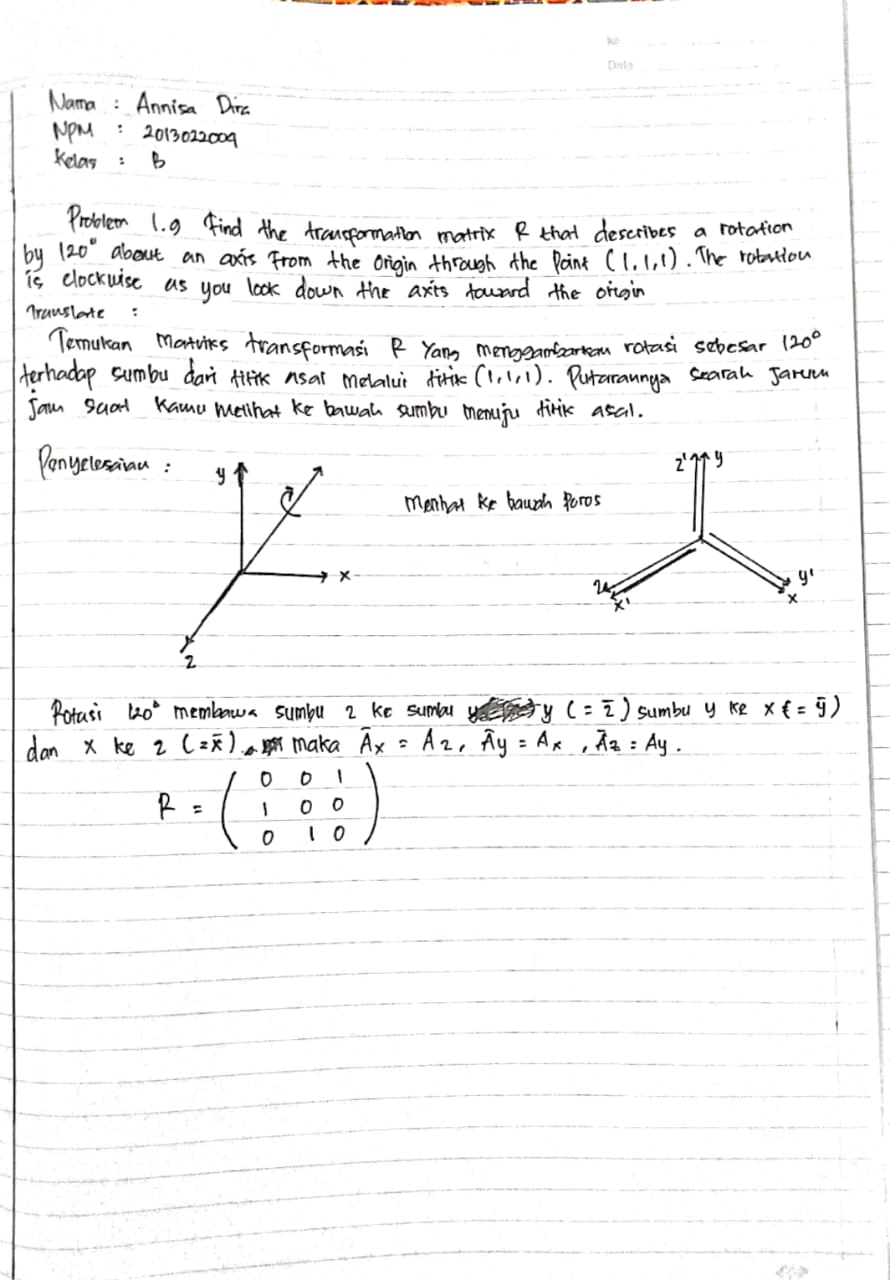 No
Date
Nama : Annisa Dira
NPM : 2013022009
Kelas : B
Problem 1.9 Find the transformation matrix R that describes a rotation
by 120° about an axis From the Origin through the Point (1,1,1). The rotation
is clockwise as you look down the axis toward the origin
Translate :
Temukan Matriks transformasi R Yang menggambarkan rotasi sebesar 120°
terhadap sumbu dari titik asal Melalui titik (1,1,1). Putarannya searah Jarum
jam saat kamu melihat ke bawah sumbu menuju titik asal.
Penyelesaian :
y
x
z
Melihat ke bawah Poros
z' y
z
x'
y'
x
Rotasi 120° membawa sumbu z ke sumbu y (= z̄) sumbu y ke x (= ȳ)
dan x ke z (= x̄) maka Āx = Az, Āy = Ax , Āz = Ay.
R = ( 0 0 1
1 0 0
0 1 0 )